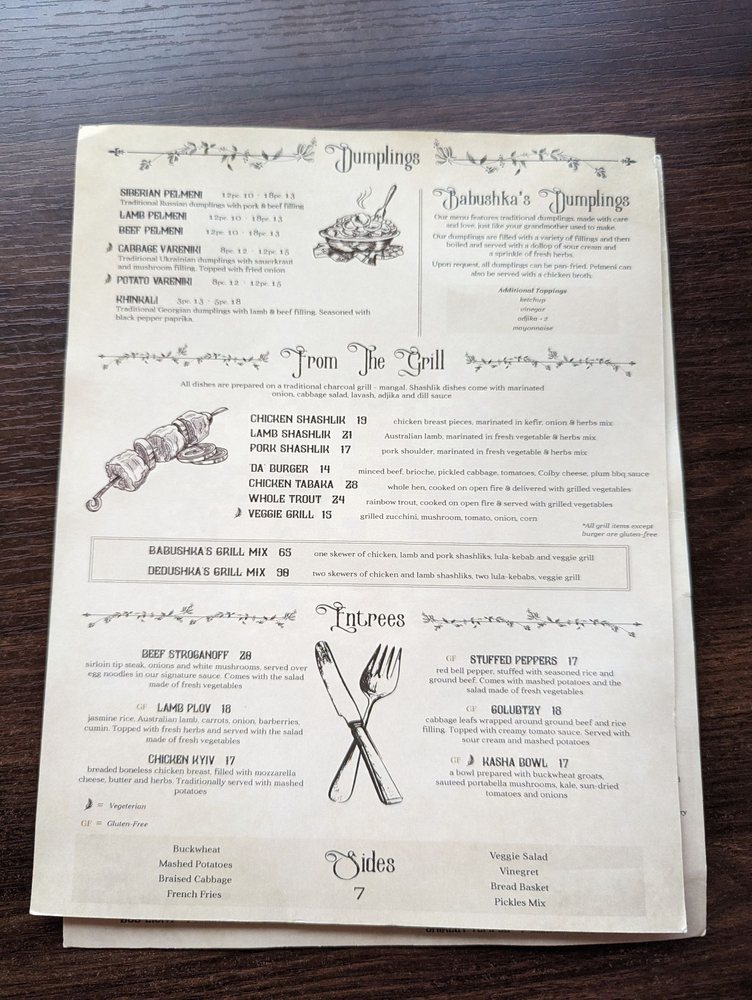 Dumplings
SIBERIAN PELMENI 12pc. 10 - 18pc. 13
Traditional Russian dumplings with pork & beef filling
LAMB PELMENI 12pc. 10 - 18pc. 13
BEEF PELMENI 12pc. 10 - 18pc. 13
CABBAGE VARENIKI 8pc. 12 - 12pc. 15
Traditional Ukrainian dumplings with sauerkraut
and mushroom filling. Topped with fried onion
POTATO VARENIKI 8pc. 12 - 12pc. 15
KHINKALI 3pc. 13 - 5pc. 18
Traditional Georgian dumplings with lamb & beef filling. Seasoned with
black pepper paprika.
Babushka's Dumplings
Our menu features traditional dumplings, made with care
and love, just like your grandmother used to make.
Our dumplings are filled with a variety of fillings and then
boiled and served with a dollop of sour cream and
a sprinkle of fresh herbs.
Upon request, all dumplings can be pan-fried. Pelmeni can
also be served with a chicken broth.
Additional Toppings
ketchup
vinegar
adjika - 2
mayonnaise
From The Grill
All dishes are prepared on a traditional charcoal grill - mangal. Shashlik dishes come with marinated
onion, cabbage salad, lavash, adjika and dill sauce
CHICKEN SHASHLIK 19 chicken breast pieces, marinated in kefir, onion & herbs mix
LAMB SHASHLIK 21 Australian lamb, marinated in fresh vegetable & herbs mix
PORK SHASHLIK 17 pork shoulder, marinated in fresh vegetable & herbs mix
DA BURGER 14 minced beef, brioche, pickled cabbage, tomatoes, Colby cheese, plum bbq sauce
CHICKEN TABAKA 28 whole hen, cooked on open fire & delivered with grilled vegetables
WHOLE TROUT 24 rainbow trout, cooked on open fire & served with grilled vegetables
VEGGIE GRILL 15 grilled zucchini, mushroom, tomato, onion, corn
*All grill items except
burger are gluten-free
BABUSHKA'S GRILL MIX 65 one skewer of chicken, lamb and pork shashliks, lula-kebab and veggie grill
DEDUSHKA'S GRILL MIX 98 two skewers of chicken and lamb shashliks, two lula-kebabs, veggie grill
Entrees
BEEF STROGANOFF 28
sirloin tip steak, onions and white mushrooms, served over
egg noodles in our signature sauce. Comes with the salad
made of fresh vegetables
GF LAMB PLOV 18
jasmine rice, Australian lamb, carrots, onion, barberries,
cumin. Topped with fresh herbs and served with the salad
made of fresh vegetables
CHICKEN KYIV 17
breaded boneless chicken breast, filled with mozzarella
cheese, butter and herbs. Traditionally served with mashed
potatoes
= Vegeterian
GF = Gluten-Free
GF STUFFED PEPPERS 17
red bell pepper, stuffed with seasoned rice and
ground beef. Comes with mashed potatoes and the
salad made of fresh vegetables
GF GOLUBTZY 18
cabbage leafs wrapped around ground beef and rice
filling. Topped with creamy tomato sauce. Served with
sour cream and mashed potatoes
GF KASHA BOWL 17
a bowl prepared with buckwheat groats,
sauteed portabella mushrooms, kale, sun-dried
tomatoes and onions
Sides
7
Buckwheat
Mashed Potatoes
Braised Cabbage
French Fries
Veggie Salad
Vinegret
Bread Basket
Pickles Mix